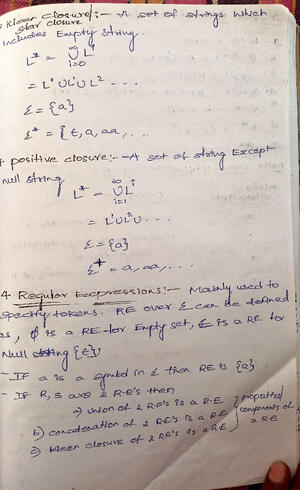 Kleen closure/:- A set of strings which
star closure
includes Empty string.
L* = ∞∪i=0 Lⁱ
= L⁰ ∪ L¹ ∪ L² - - -
Σ = {a}
Σ* = {ε, a, aa, . . .
positive closure:- A set of string Except
null string
L* = ∞∪i=1 Lⁱ
= L¹ ∪ L² ∪ . . .
Σ = {a}
Σ⁺ = a, aa, . . .
4 Regular Expressions:- Mainly used to
specify tokens. RE over Σ can be defined
as, φ is a RE for Empty set, ε is a RE for
Null {ε}
- If a is a symbol in Σ then RE is {a}
- If R, S are 2 R.E's then
a) union of 2 R.E's is a R.E
b) of 2 RE's is a RE
c) kleen closure of 2 RE's is a RE
properties/
components of
a R.E